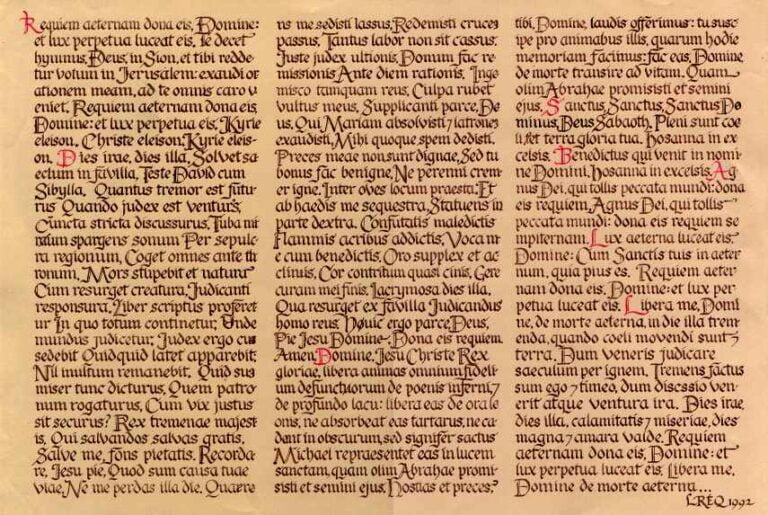 Requiem aeternam dona eis, Domine:
et lux perpetua luceat eis. Te decet
hymnus, Deus, in Sion, et tibi redde-
tur votum in Jerusalem: exaudi or
ationem meam, ad te omnis caro v
eniet. Requiem aeternam dona eis
Domine: et lux perpetua eis. Kyrie
eleison. Christe eleison. Kyrie eleis-
on. Dies irae, dies illa, Solvet sa
eclum in favilla, Teste David cum
Sibylla. Quantus tremor est futu
rus Quando judex est venturs,
Cuncta stricta discussurus, Tuba mi
ralum spargens sonum Per sepulc
ra regionum, Coget omnes ante th
ronum, Mors stupebit et natura
Cum resurget creatura, Judicanti
responsura. Liber scriptus proferet
ur In quo totum continetur, Unde
mundus judicetur, Judex ergo cu
sedebit Quidquid latet apparebit,
Nil inultum remanebit. Quid sus
miser tunc dicturus, Quem patro
num rogaturus, Cum vix justus
sit securus? Rex tremenae majest
is, Qui salvandos salvas gratis,
Salve me, fons pietatis. Recorda
re, Jesu pie, Quod sum causa tuae
viae, Ne me perdas illa die. Quaere
ns me sedisti lassus, Redemisti cruces
passus, Tantus labor non sit cassus.
Juste judex ultionis, Donum fac re
missionis Ante diem rationis. Inge
misco tamquam reus, Culpa rubet
vultus meus, Supplicanti parce, De
us, Qui Mariam absolvisti 7 latrones
exaudisti, Mihi quoque spem dedisti.
Preces meae non sunt dignae, Sed tu
bonus fac benigne, Ne perenni crem
er igne. Inter oves locum praesta, Et
ab haedis me sequestra, Statuens in
parte dextra. Confutatis maledictis
Flammis acribus addictis, Voca m
e cum benedictis. Oro supplex et ac
clinis, Cor contritum quasi cinis, Gere
curam mei finis, Lacrymosa dies illa,
Qua resurget ex favilla Judicandus
homo reus, Huic ergo parce, Deus,
Pie Jesu Domine, Dona eis requiem
Amen. Domine, Jesu Christe Rex
gloriae, libera animas omnium fideli
um defunctorum de poenis inferni, 7
de profundo lacu: libera eas de ora le
onis, ne absorbeat eas tartarus, ne ca
dant in obscurum, sed signifer sactus
Michael repraesentet eas in lucem
sanctam, quam olim Abrahae promi-
sisti et semini ejus, Hostias et preces,
tibi, Domine, laudis offerimus: tu susc
ipe pro animabus illis, quarum hodie
memoriam facimus: fac eas, Domine,
de morte transire ad vitam. Quam
olim Abrahae promisisti et semini
ejus, Sanctus, Sanctus, Sanctus Do
minus, Deus Sabaoth, Pleni sunt coe
li et terra gloria tua. Hosanna in ex
celsis. Benedictus qui venit in nomi
ne Domini, Hosanna in excelsis, Ag
nus Dei, qui tollis peccata mundi: dona
eis requiem, Agnus Dei, qui tollis
peccata mundi: dona eis requiem se
mpiternam. Lux aeterna luceat eis,
Domine: Cum Sanctis tuis in aeter
num, quia pius es. Requiem aeter
nam dona eis, Domine: et lux per
petua luceat eis. Libera me, Domi
ne, de morte aeterna, in die illa trem
enda, quando coeli movendi sunt 7
terra. Dum veneris judicare
saeculum per ignem. Tremens factus
sum ego 7 timeo, dum discssio ven
erit atque ventura ira. Dies irae,
dies illa, calamitatis 7 miseriae, dies
magna 7 amara valde. Requiem
aeternam dona eis, Domine: et
lux perpetua luceat eis. Libera me,
Domine de morte aeterna...
1992